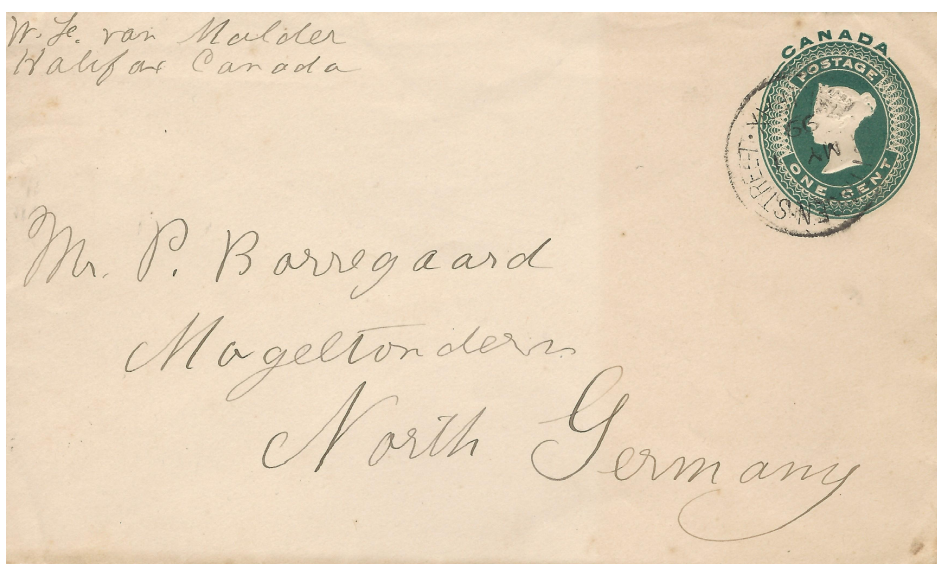 W. Fr. van Malder
Halifax Canada
CANADA
POSTAGE
ONE CENT
99
MY
N. STREET.
Mr. P. Borregaard
Mogeltondern
North Germany